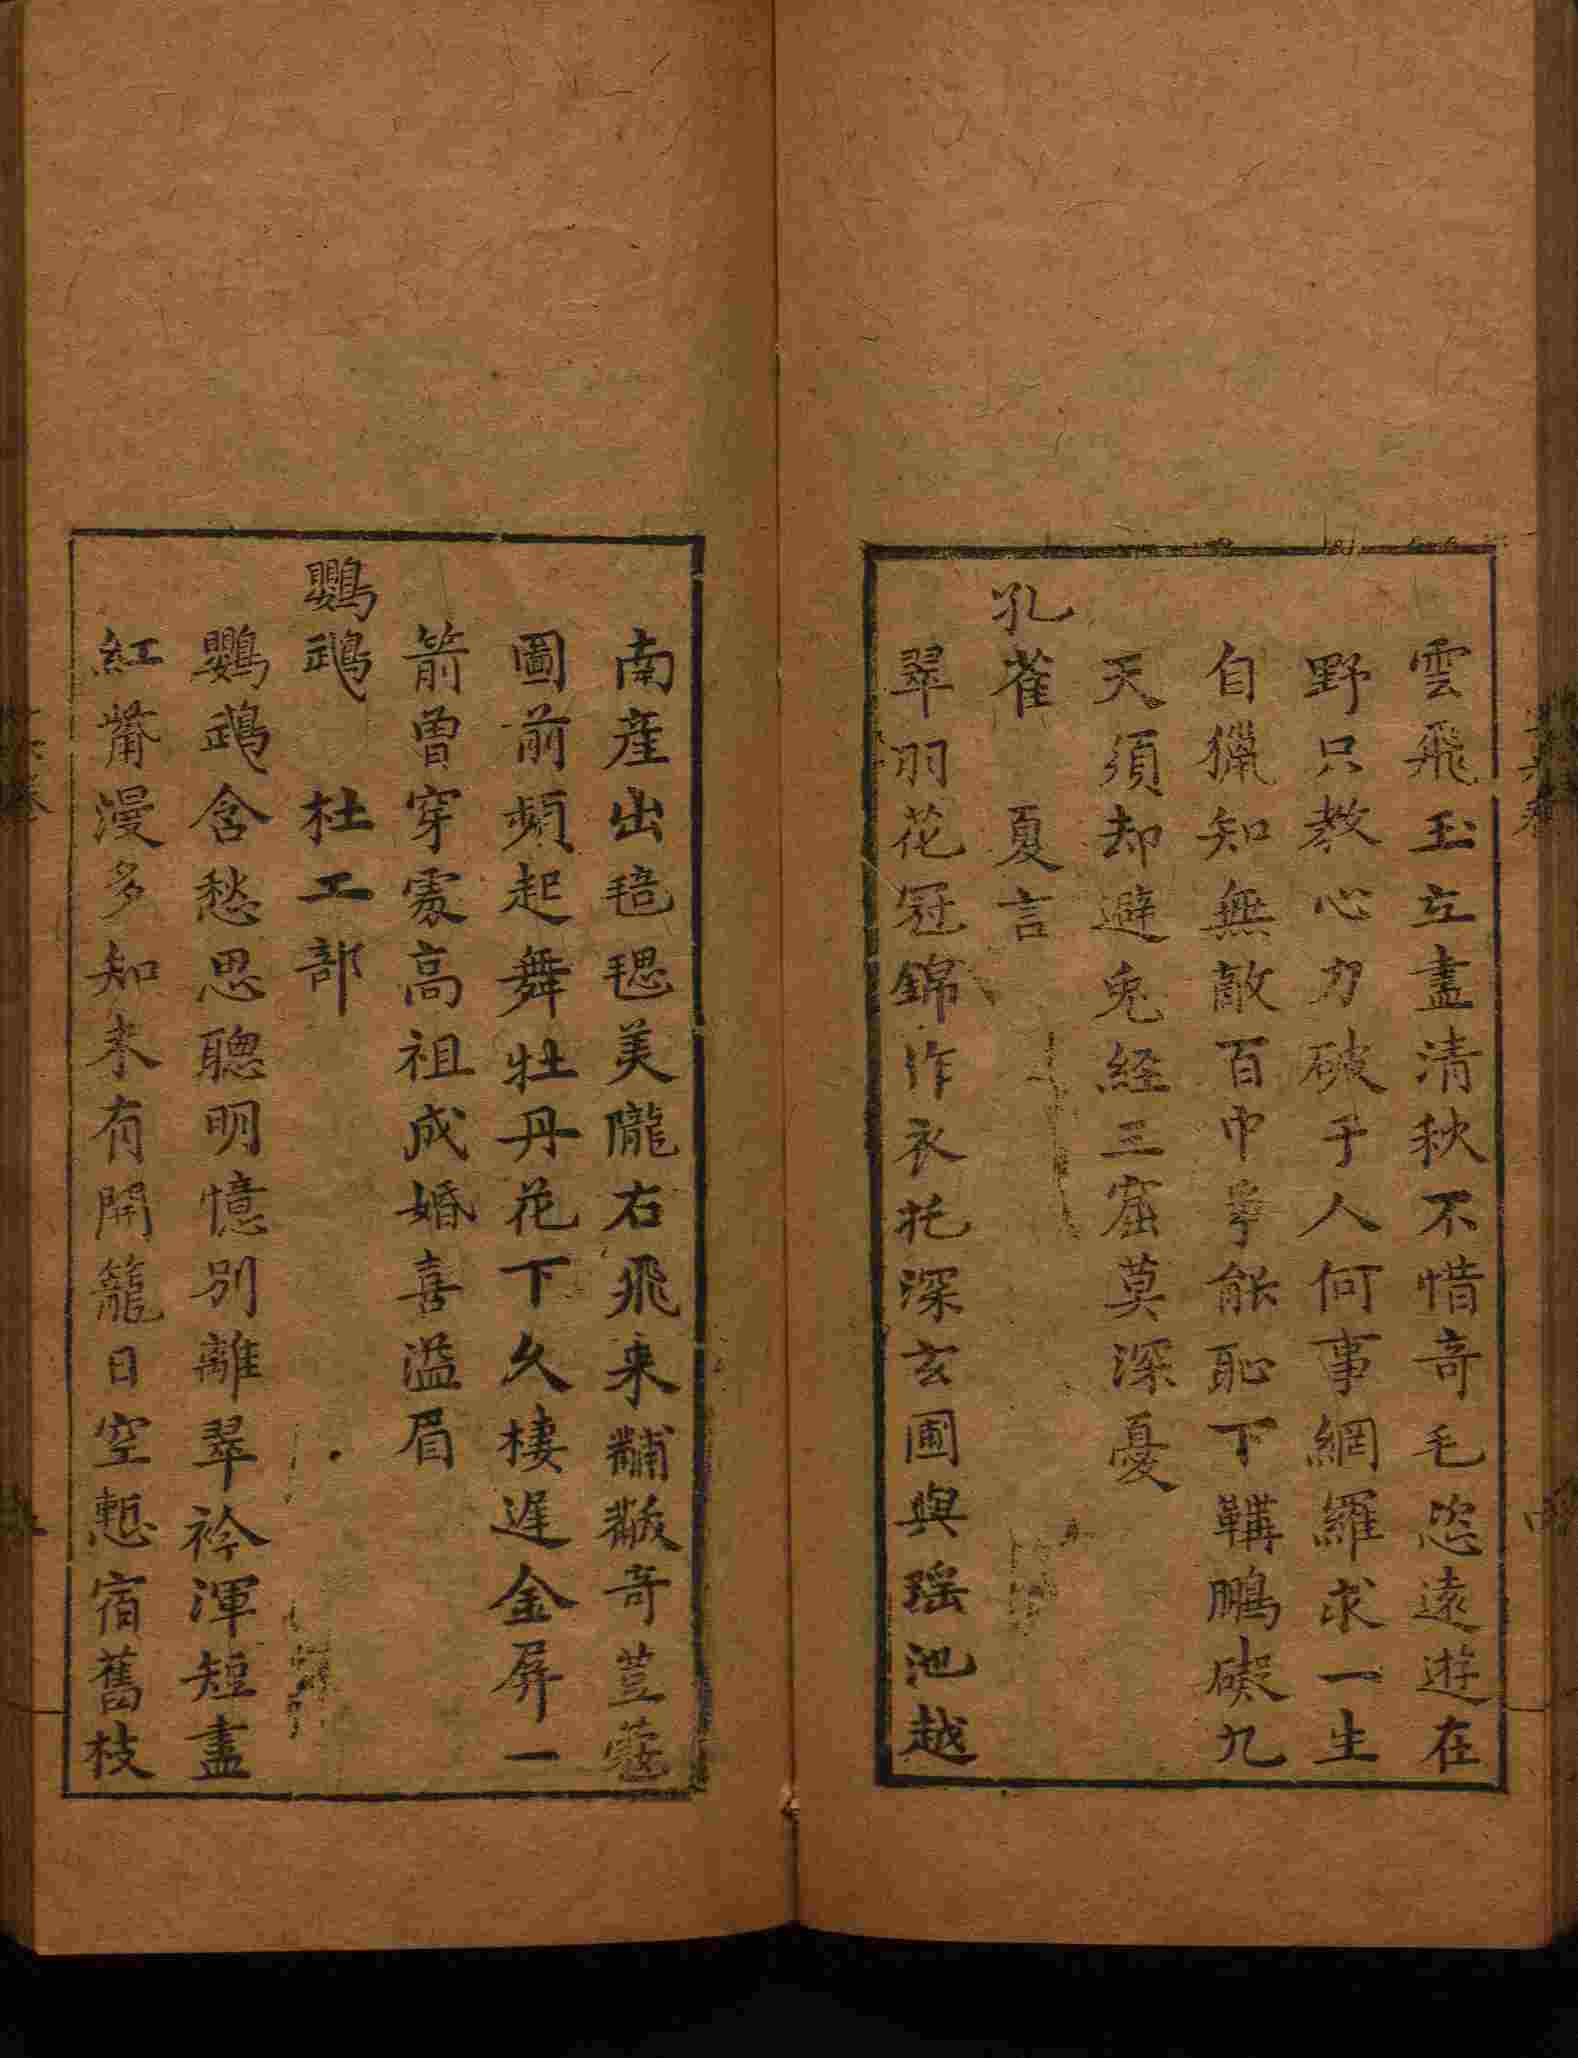 雲飛玉立盡清秋不惜奇毛恣遠遊在
野只教心力破于人何事網羅求一生
自獵知無敵百中爭能恥下鞲鵬礙九
天須却避兎経三窟莫深憂
孔雀　夏言
翠羽花冠錦作衣托深玄圃與瑶池越
南産出毰毸美隴右飛来黼黻奇荳蔲
圖前頻起舞牡丹花下久棲遲金屏一
箭曾穿處高祖成婚喜溢眉
鸚鵡　杜工部
鸚鵡含愁思聰明憶別離翠衿渾短盡
紅觜漫多知未有開籠日空慙宿舊枝